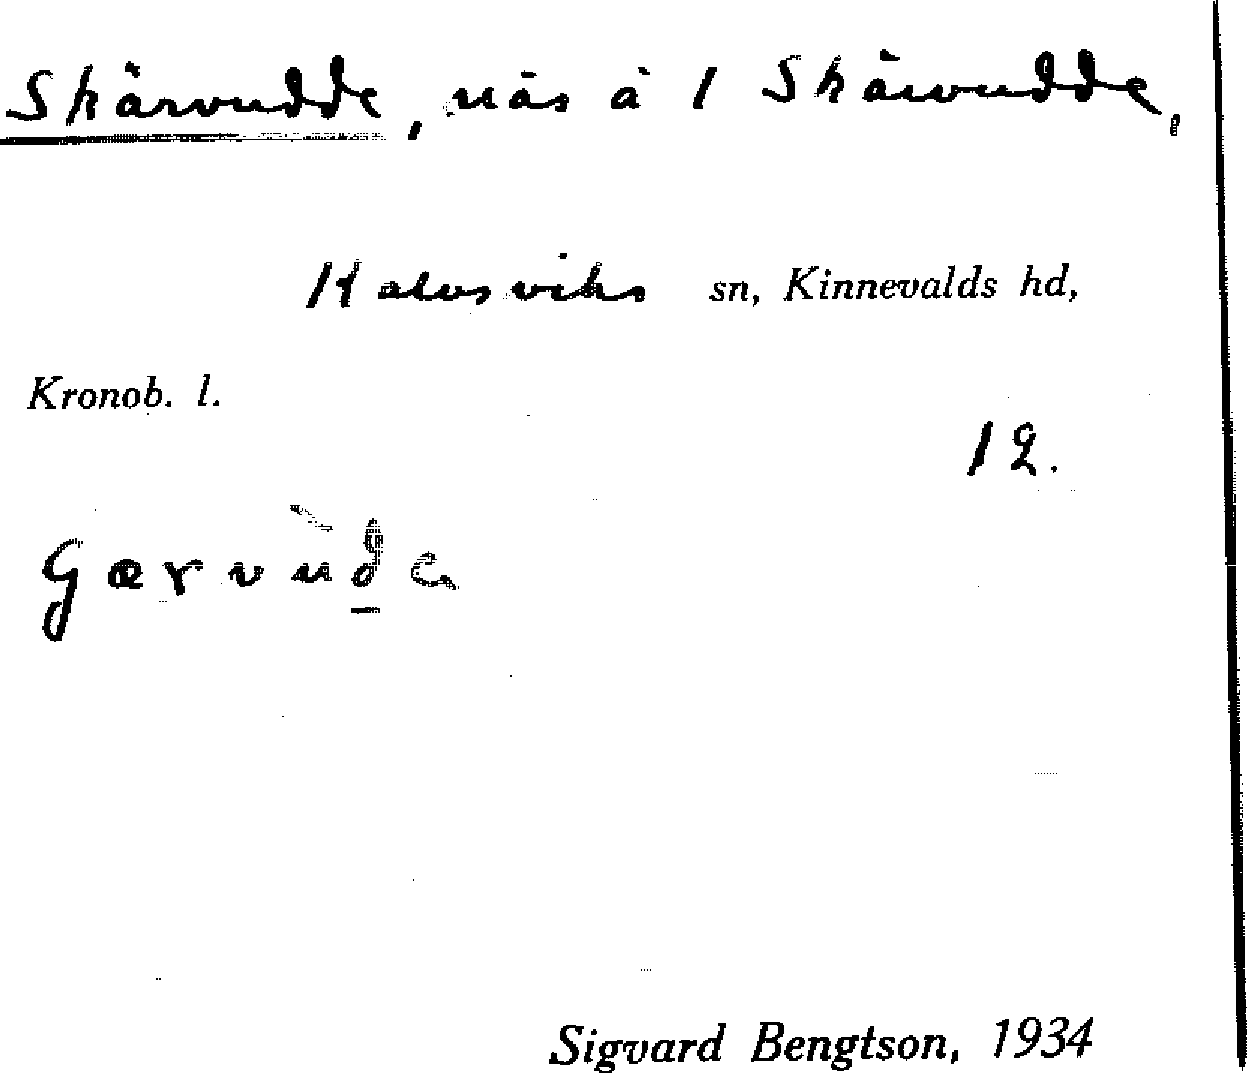 Skärvudde, näs å 1 Skärvudde,
Kalvsviks sn, Kinnevalds hd,
Kronob. l.
12.
Gærvùde
Sigvard Bengtson, 1934